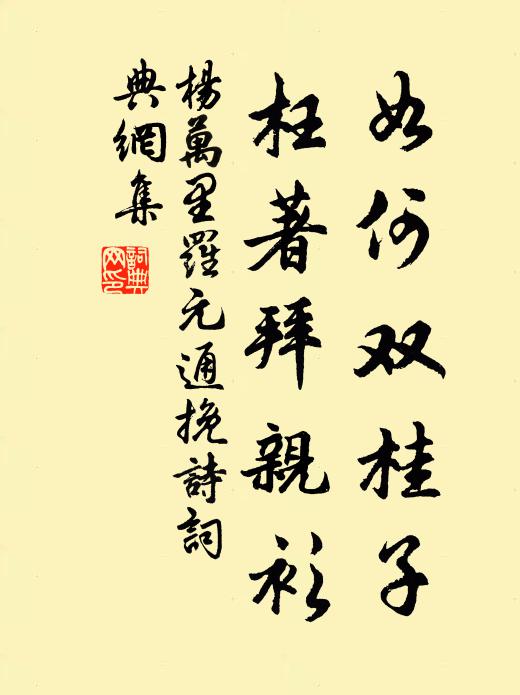 如何双桂子
枉著拜親衫
楊萬里羅元通挽詩詞
典網集
詞典网印